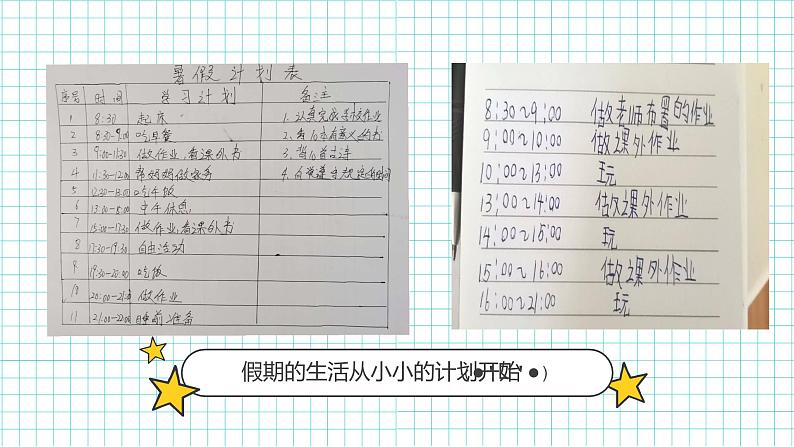 暑假计划表
序号 时间 学习计划 备注
1 8:30 起床 1.认真完成学校作业
2 8:30-9:00 吃早餐 2.看10本有意义的书
3 9:00-11:30 做作业,看课外书 3.背10首古诗
4 11:30-12:00 帮妈妈做家务 4.自觉遵守规定的时间
5 12:30-13:00 吃午饭
6 13:00-15:00 中午休息
7 15:00-17:30 做作业,看课外书
8 17:30-19:30 自由活动
9 19:30-20:00 吃饭
10 20:00-21:00 做作业
11 21:00-22:00 睡前准备
8:30~9:00 做老师布置的作业
9:00~10:00 做课外作业
10:00~13:00 玩
13:00~14:00 做课外作业
14:00~15:00 玩
15:00~16:00 做课外作业
16:00~21:00 玩
假期的生活从小小的计划开始